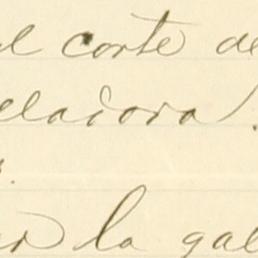 el corte de
eladora.
la gal